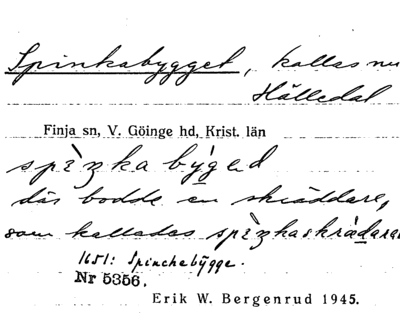 Spinkabygget, kallas nu
Hälledal
Finja sn, V. Göinge hd, Krist. län
spìŋka býged
där bodde en skräddare,
som kallades spìŋkaskrädaran
1651: Spinchebÿgge.
Nr 5356.
Erik W. Bergenrud 1945.